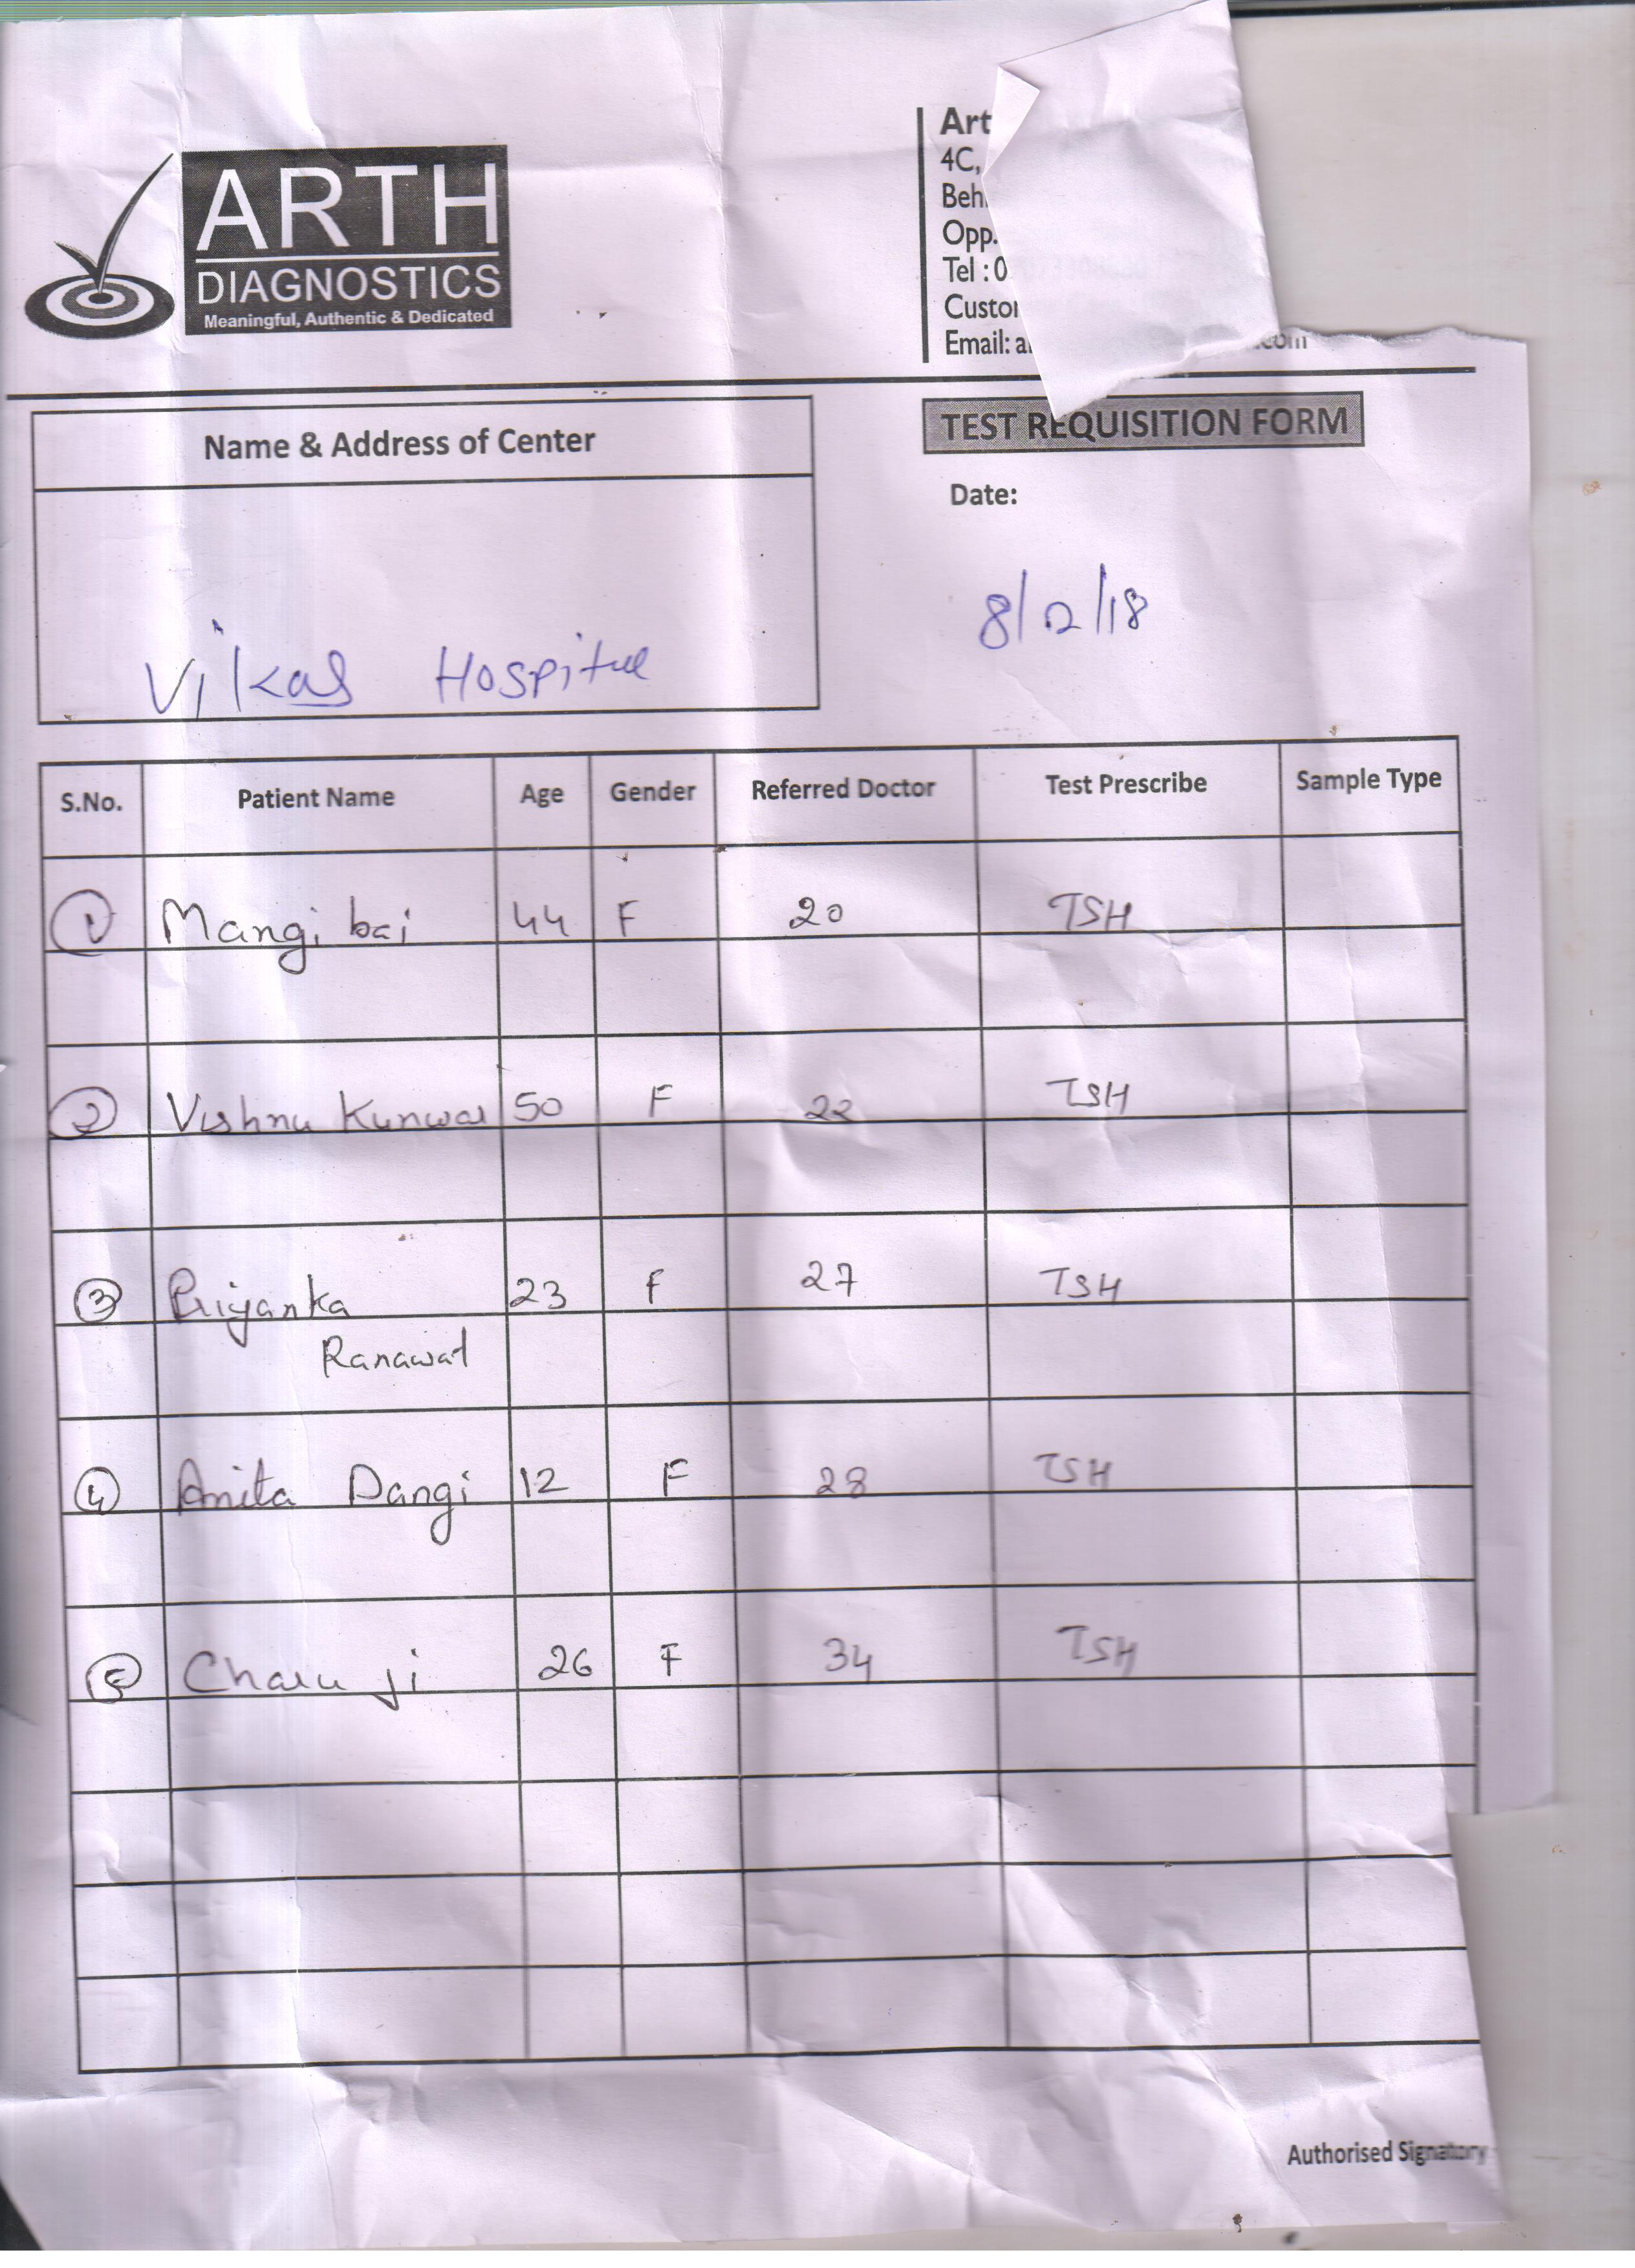 ARTH
DIAGNOSTICS
Meaningful, Authentic & Dedicated
Art
4C,
Beh.
Opp.
Tel : 0
Custo
Email: a
.com
Name & Address of Center
Vikas Hospital
TEST REQUISITION FORM
Date:
8/12/18
S.No. Patient Name Age Gender Referred Doctor Test Prescribe Sample Type
1 Mangi bai 44 F 20 TSH
2 Vishnu Kunwar 50 F 22 TSH
3 Priyanka 23 F 27 TSH
Ranawat
4 Anita Dangi 12 F 28 TSH
5 Charu ji 26 F 34 TSH
Authorised Signatory